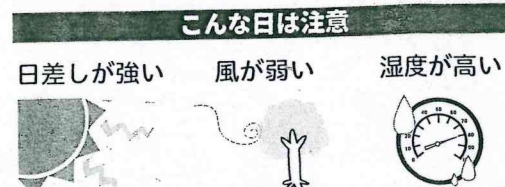 こんな日は注意
日差しが強い 風が弱い 湿度が高い